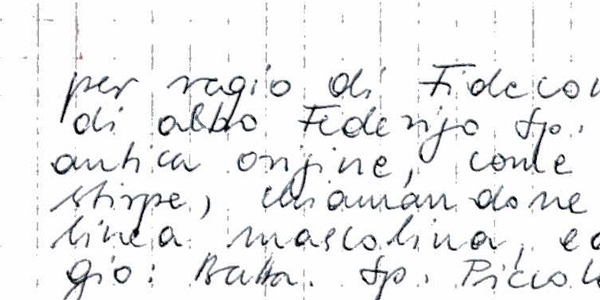 per ragio di Fidecom
di altro Federigo Sp.
antica origine, come
stirpe, chiamandone
linea mascolina, ed
gio: Batta. Sp. Piccol